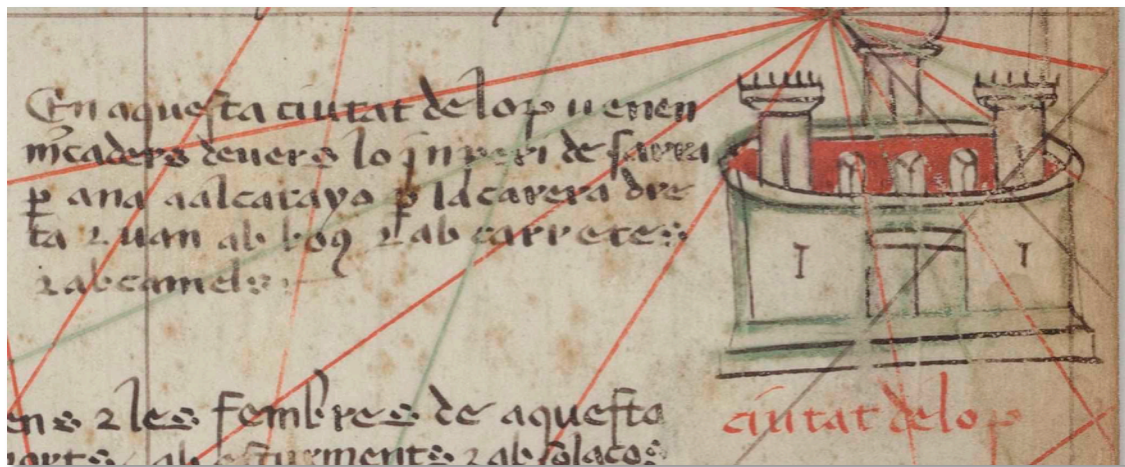 En aquesta ciutat de lop uenen
mcaders deuers lo inperi de sarra
p ana aalcatayo p la carera dre
ta 2 uan ab boq 2 ab carretes
2 ab camels
ens 2 les fembres de aquesta
ab esturments 2 ab solacos
ciutat de lop